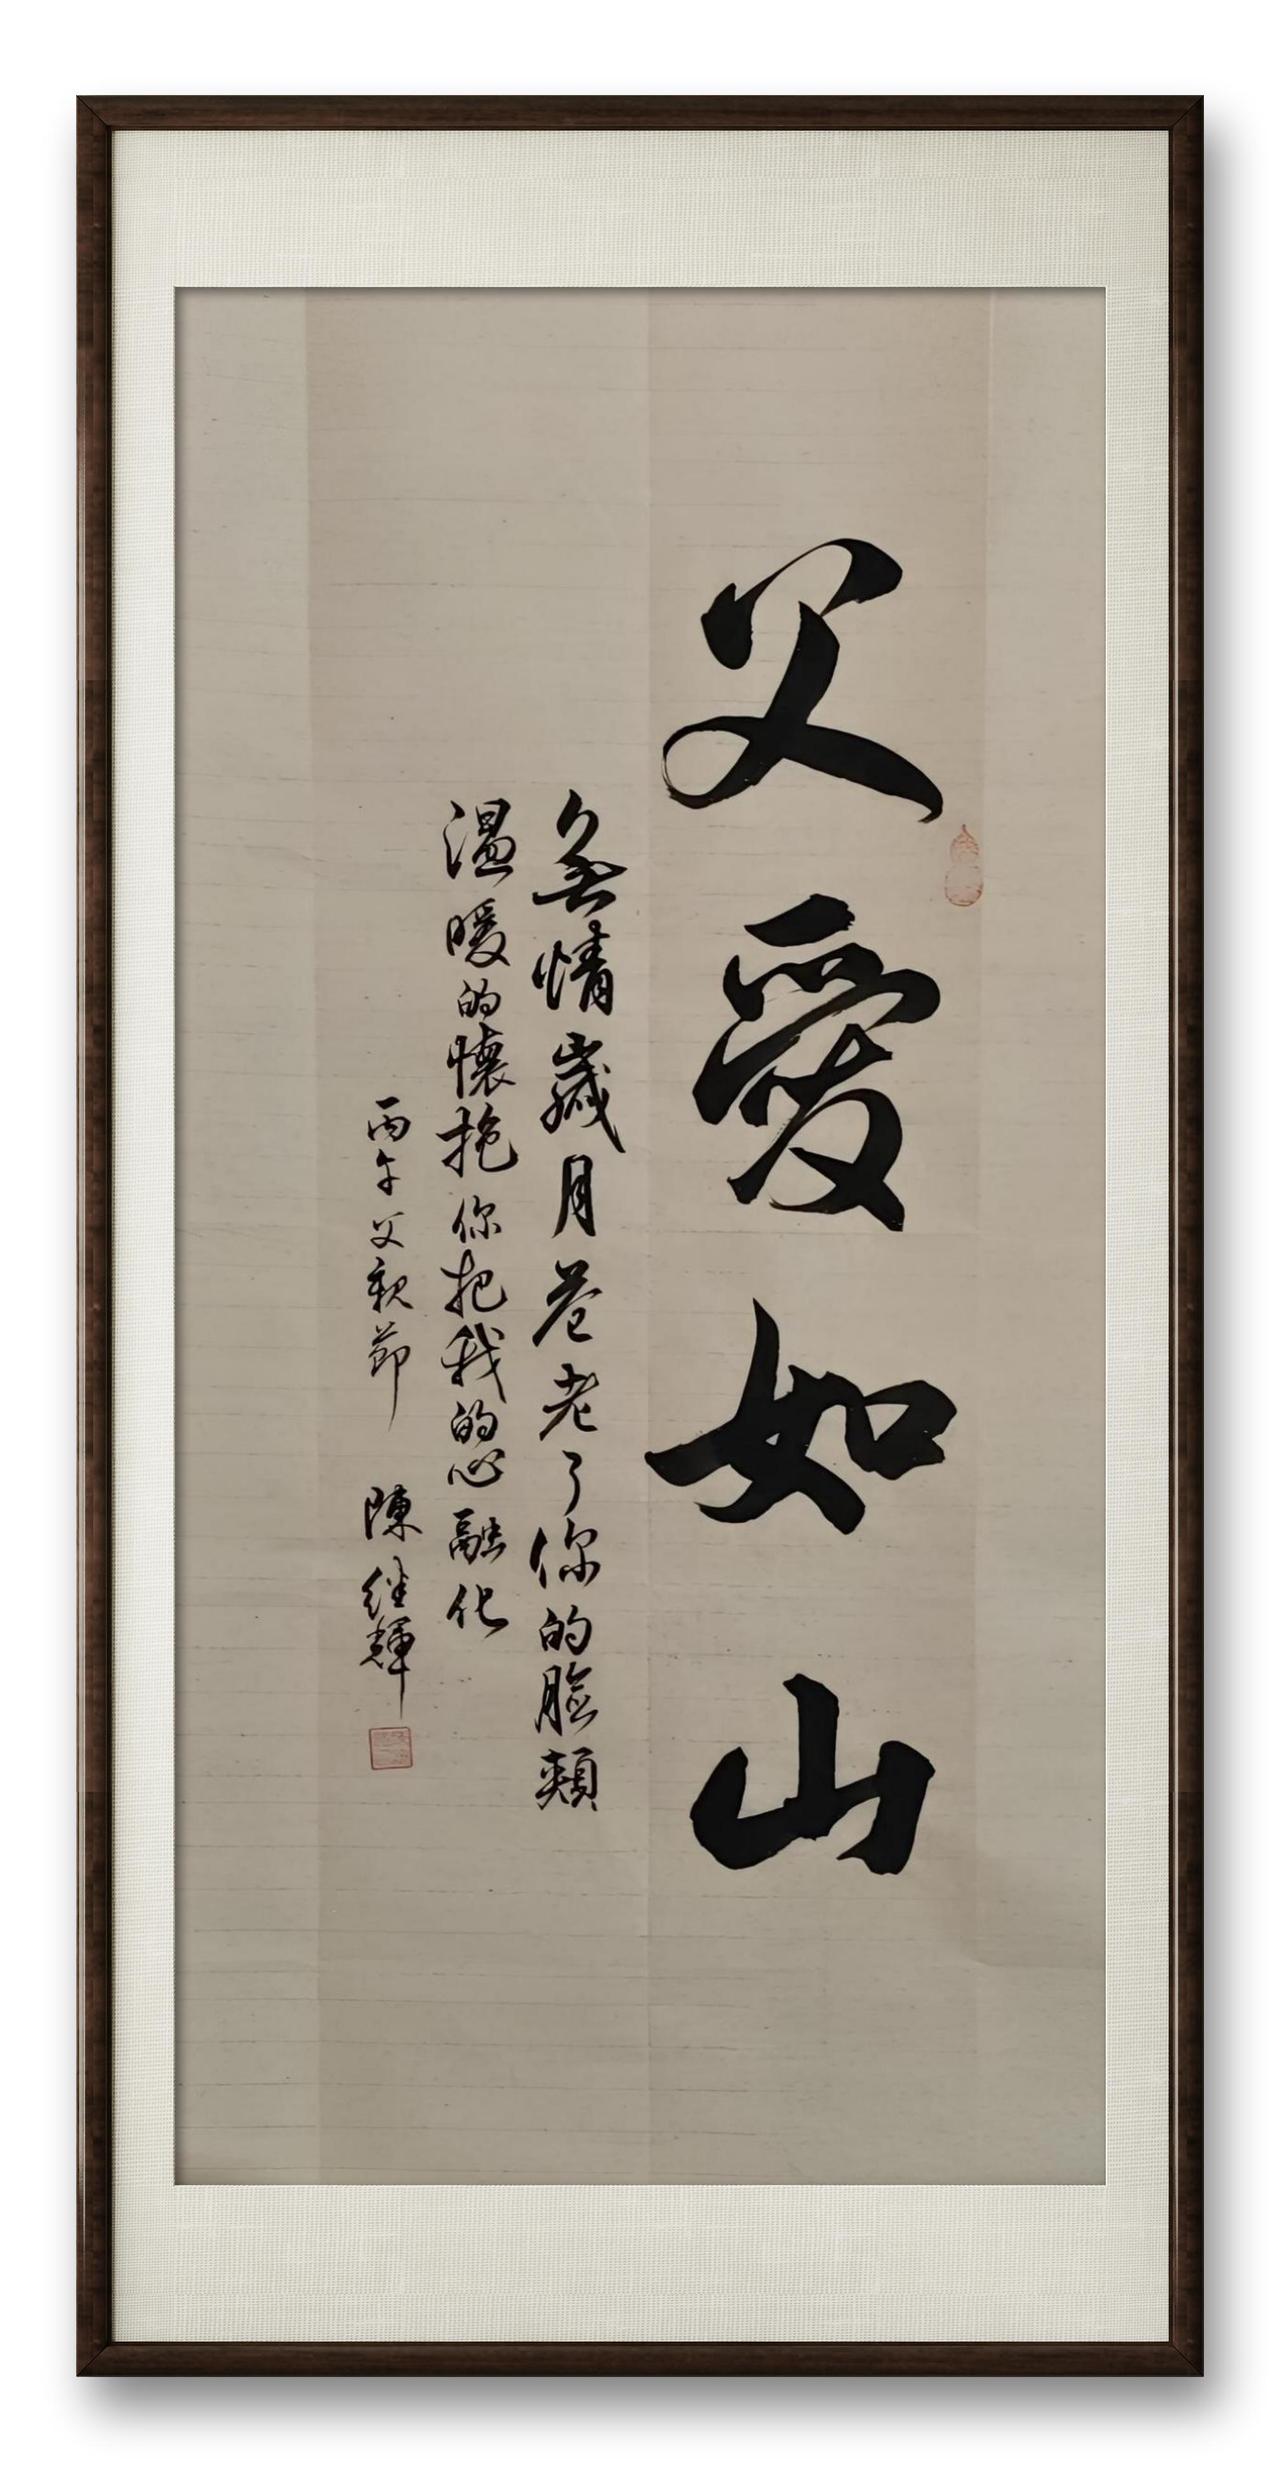 父愛如山
無情歲月苍老了你的臉頰
温暖的懷抱你把我的心融化
丙午父親節 陳继輝